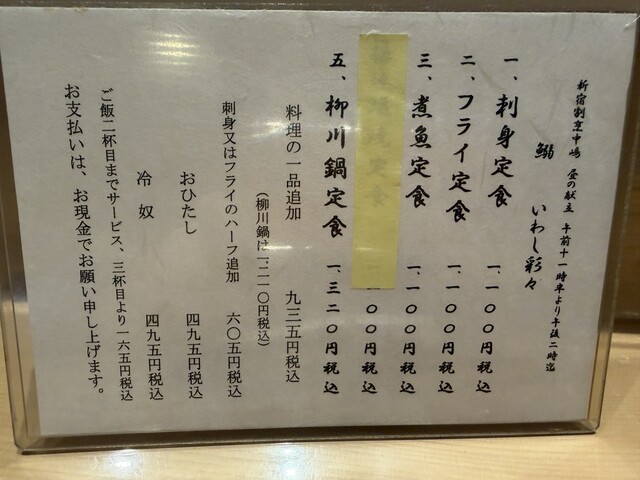 新宿割烹中嶋 昼の献立 午前十一時半より午後二時迄
鰯 いわし彩々
一、刺身定食 一、一〇〇円税込
二、フライ定食 一、一〇〇円税込
三、煮魚定食 一、一〇〇円税込
一〇〇円税込
五、柳川鍋定食 一、三二〇円税込
料理の一品追加 九三五円税込
(柳川鍋は一、二一〇円税込)
刺身又はフライのハーフ追加 六〇五円税込
おひたし 四九五円税込
冷奴 四九五円税込
ご飯二杯目までサービス、三杯目より一六五円税込
お支払いは、お現金でお願い申し上げます。